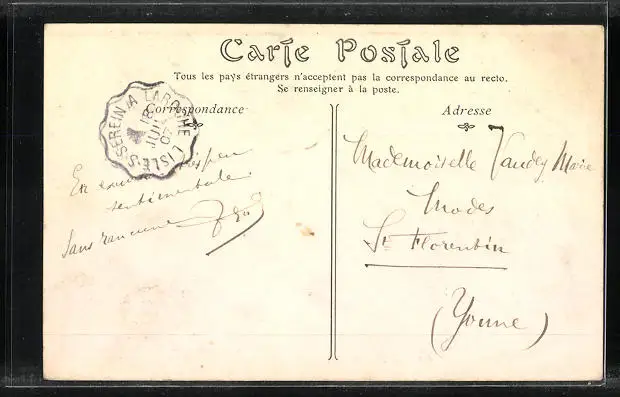 Carte Postale
Tous les pays étrangers n'acceptent pas la correspondance au recto.
Se renseigner à la poste.
Correspondance
Adresse
L'ISLE-S-SEREIN A LAROCHE
18
JUIL
07
En
peu
sentimentale.
Sans rancune
Mademoiselle Vaudey Marie
Modes
St Florentin
(Yonne)